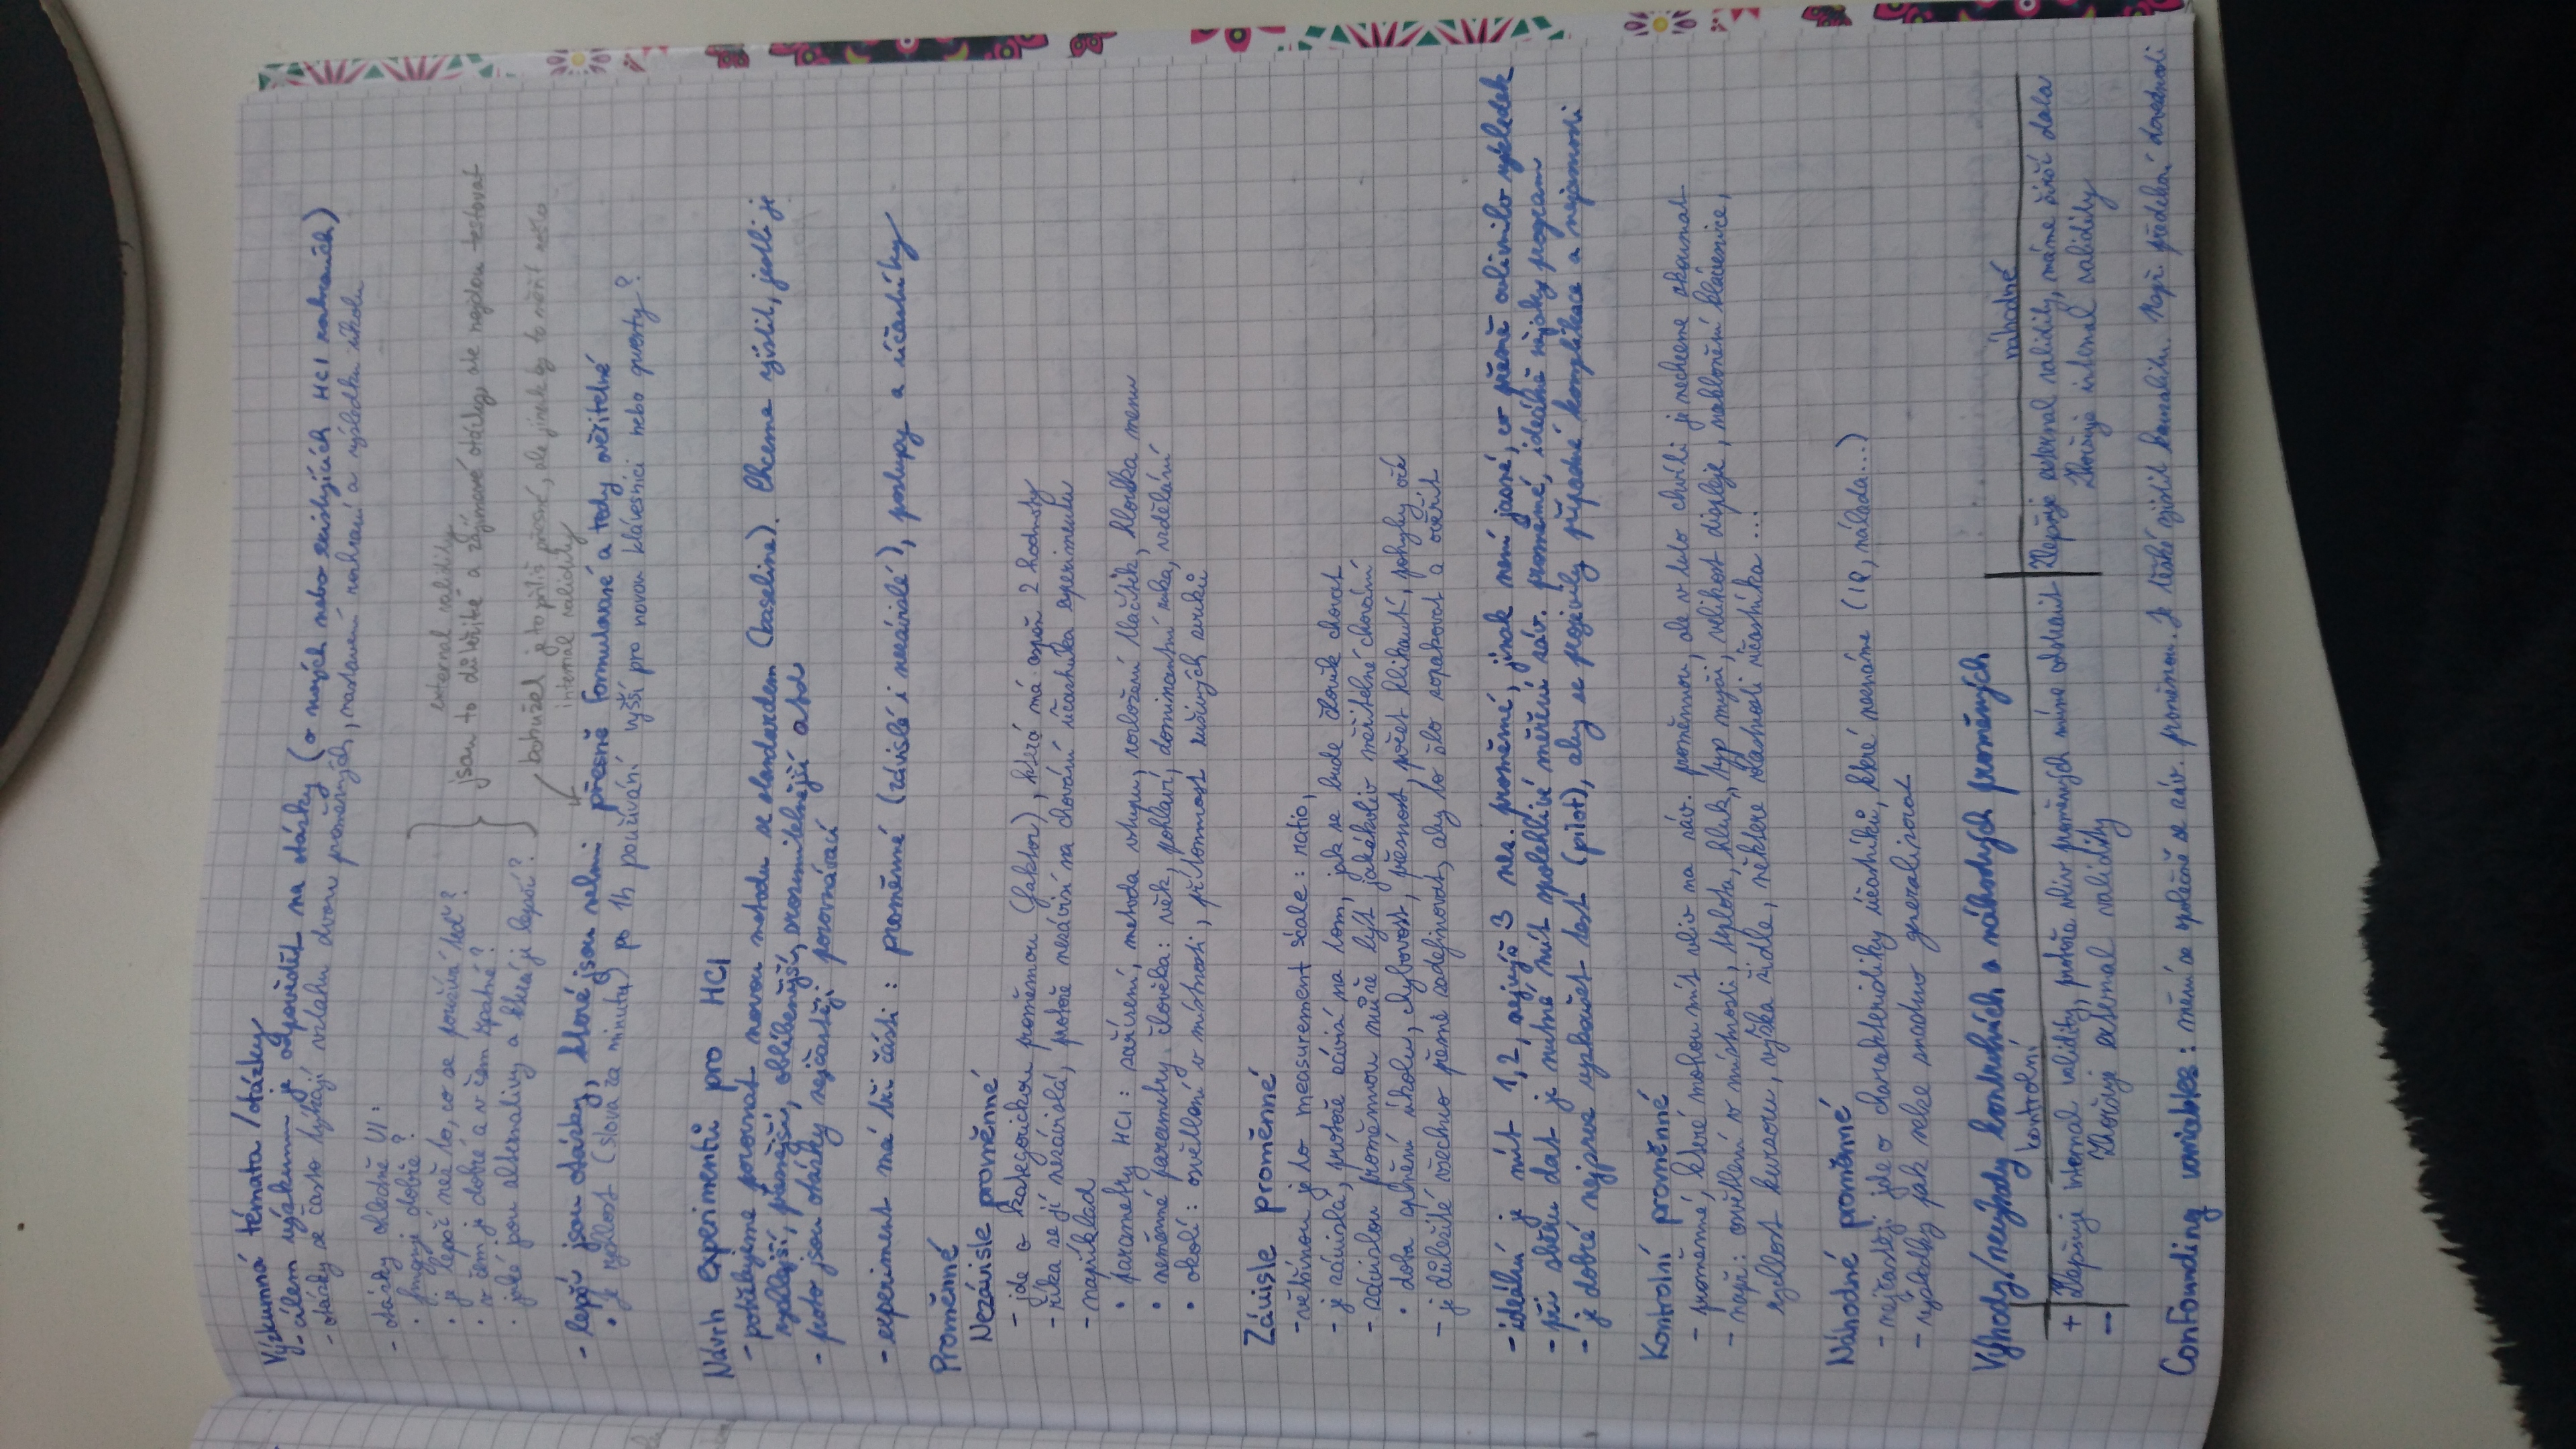 Výzkumná témata / otázky
- cílem výzkumu je odpovědět na otázky (o nových nebo existujících HCI rozhraních)
- otázky se často týkají vztahu dvou proměnných, nastavení rozhraní a výsledku úkolu
- otázky ohledně UI:
• funguje dobře?
• je lepší než to, co se používá teď?
• v čem je dobré a v čem špatné?
• jaké jsou alternativy a která je lepší?
external validity
jsou to důležité a zajímavé otázky, ale nejdou testovat
bohužel je to příliš přesné, ale jinak by to měřit nešlo
internal validity
- lepší jsou otázky, které jsou velmi přesně formulované a tedy ověřitelné
• Je rychlost (slova za minutu) po 1h používání vyšší pro novou klávesnici nebo qwerty?
Návrh experimentů pro HCI
- potřebujeme porovnat novou metodu se standardem (baseline). Chceme zjistit, jestli je
rychlejší, přesnější, oblíbenější, srozumitelnější atd
- proto jsou otázky nejčastěji porovnávací
- experiment má tři části: proměnné (závislé i nezávislé), postupy a účastníky
Proměnné
Nezávisle proměnné
- jde o kategorickou proměnnou (faktor), která má aspoň 2 hodnoty
- říká se jí nezávislá, protože nezávisí na chování účastníka experimentu
- například
• parametry HCI: zařízení, metoda vstupu, rozložení tlačítek, hloubka menu
• neměnné parametry člověka: věk, pohlaví, dominantní ruka, vzdělání
• okolí: osvětlení v místnosti, přítomnost rušivých zvuků
Závisle proměnné
- většinou je to measurement scale: ratio,
- je závislá, protože závisí na tom, jak se bude člověk chovat
- závislou proměnnou může být jakékoliv měřitelné chování
• doba splnění úkolu, chybovost, přesnost, počet kliknutí, pohyby očí
- je důležité všechno přesně zadefinovat, aby to šlo zopakovat a ověřit
- ideální je mít 1,2, nejvýš 3 nez. proměnné, jinak není jasné, co přesně ovlivnilo výsledek
- při sběru dat je nutné mít spolehlivé měření záv. proměnné, ideálně nějaký program
- je dobré nejprve vyzkoušet test (pilot), aby se projevily případné komplikace a nejasnosti
Kontrolní proměnné
- proměnné, které mohou mít vliv na záv. proměnnou, ale v tuto chvíli je nechceme zkoumat
- např: osvětlení v místnosti, teplota, hluk, typ myši, velikost displeje, naklonění klávesnice,
rychlost kurzoru, výška židle, některé vlastnosti účastníka ...
Náhodné proměnné
- nejčastěji jde o charakteristiky účastníků, které neznáme (IQ, nálada...)
- výsledky pak nelze snadno generalizovat
Výhody/nevýhody kontrolních a náhodných proměnných
kontrolní náhodné
+ Zlepšuje internal validity, protože vliv proměnných umíme odstranit Zlepšuje external validity, máme širší data
- Zhoršuje external validity Zhoršuje internal validity
Confounding variables: mění se společně se záv. proměnnou. Je těžké zjistit kauzalitu. Např. předchozí dovednosti